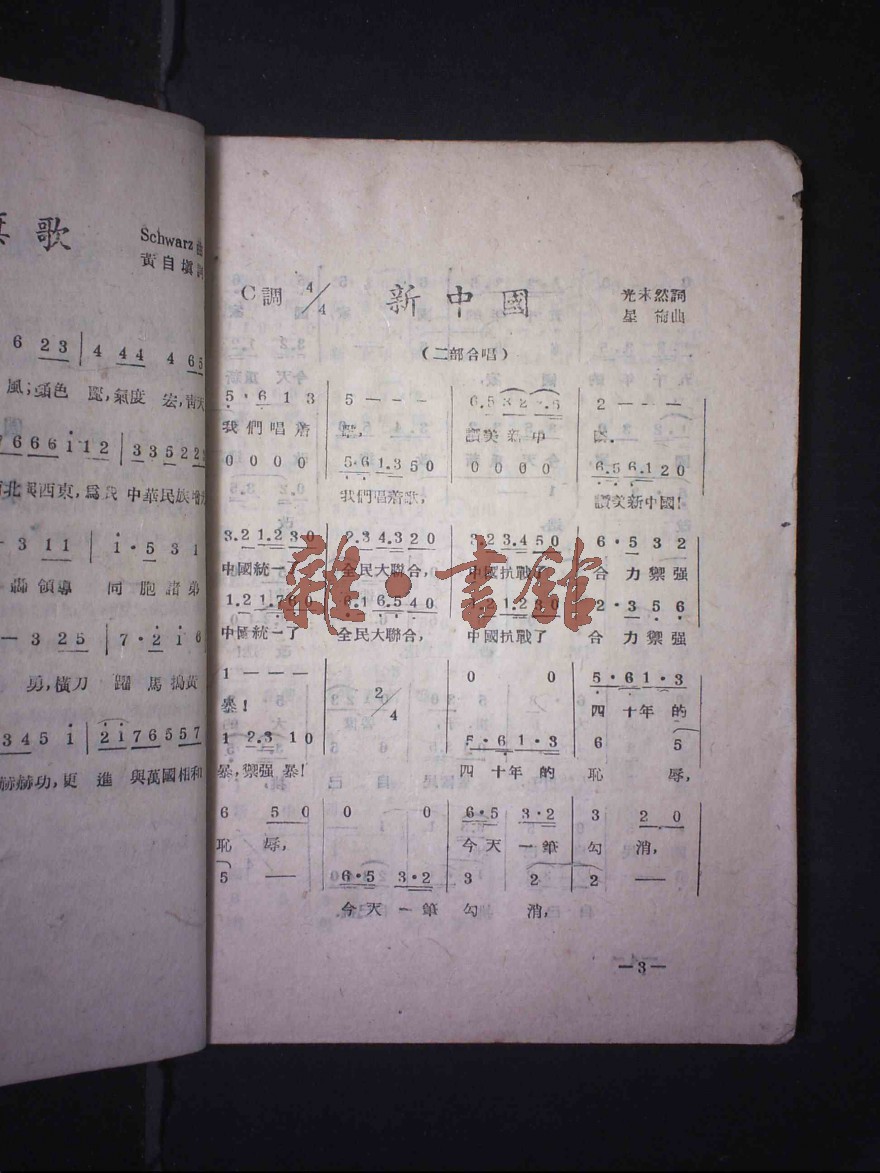 歌
Schwarz 曲
黃自填
6 2 3 | 4 4 4 4 6 5
風；顏色 麗，氣度 宏，青天
7 6 6 6 i 1 2 | 3 3 5 2 2 2
北與西東，爲我 中華民族增
— 3 1 1 | i · 5 3 1
領導 同 胞 諸 弟
— 3 2 5 | 7 · 2 i 6
勇，橫刀 躍 馬搗黃
3 4 5 i | 2 i 7 6 5 5 7
赫赫功，更 進 與萬國相和
C調 4/4 新中國 光未然詞
星 海曲
（二部合唱）
5 · 6 1 3 | 5 — — — | 6.5 3 2 · 5 | 2 — — —
我們唱着 歌， 讚美新中 國.
0 0 0 0 | 5·6 1.3 5 0 | 0 0 0 0 | 6.5 6.1 2 0
我們唱着歌， 讚美新中國！
3.2 1.2 3 0 | 2.3 4.3 2 0 | 3.2 3.4 5 0 | 6 · 5 3 2
中國統一了 全民大聯合， 中國抗戰了 合 力禦强
1.2 1.7 6 0 | 6.1 6.5 4 0 | 1.1 1.2 3 0 | 2 · 3 5 6
中國統一了 全民大聯合， 中國抗戰了 合 力禦强
1 — — — | 2/4 | 0 0 | 5 · 6 1 · 3
暴！ 四十年的
1 2.3 1 0 | 5 · 6 1 · 3 | 6 5
暴，禦强暴！ 四十年的 恥 辱，
6 5 0 | 0 0 | 6 · 5 3 · 2 | 3 2 0
恥 辱， 今天一筆 勾 消，
5 — | 6 · 5 3 · 2 | 3 2 | 2 —
今天一筆 勾 消，
—3—
雜·書館